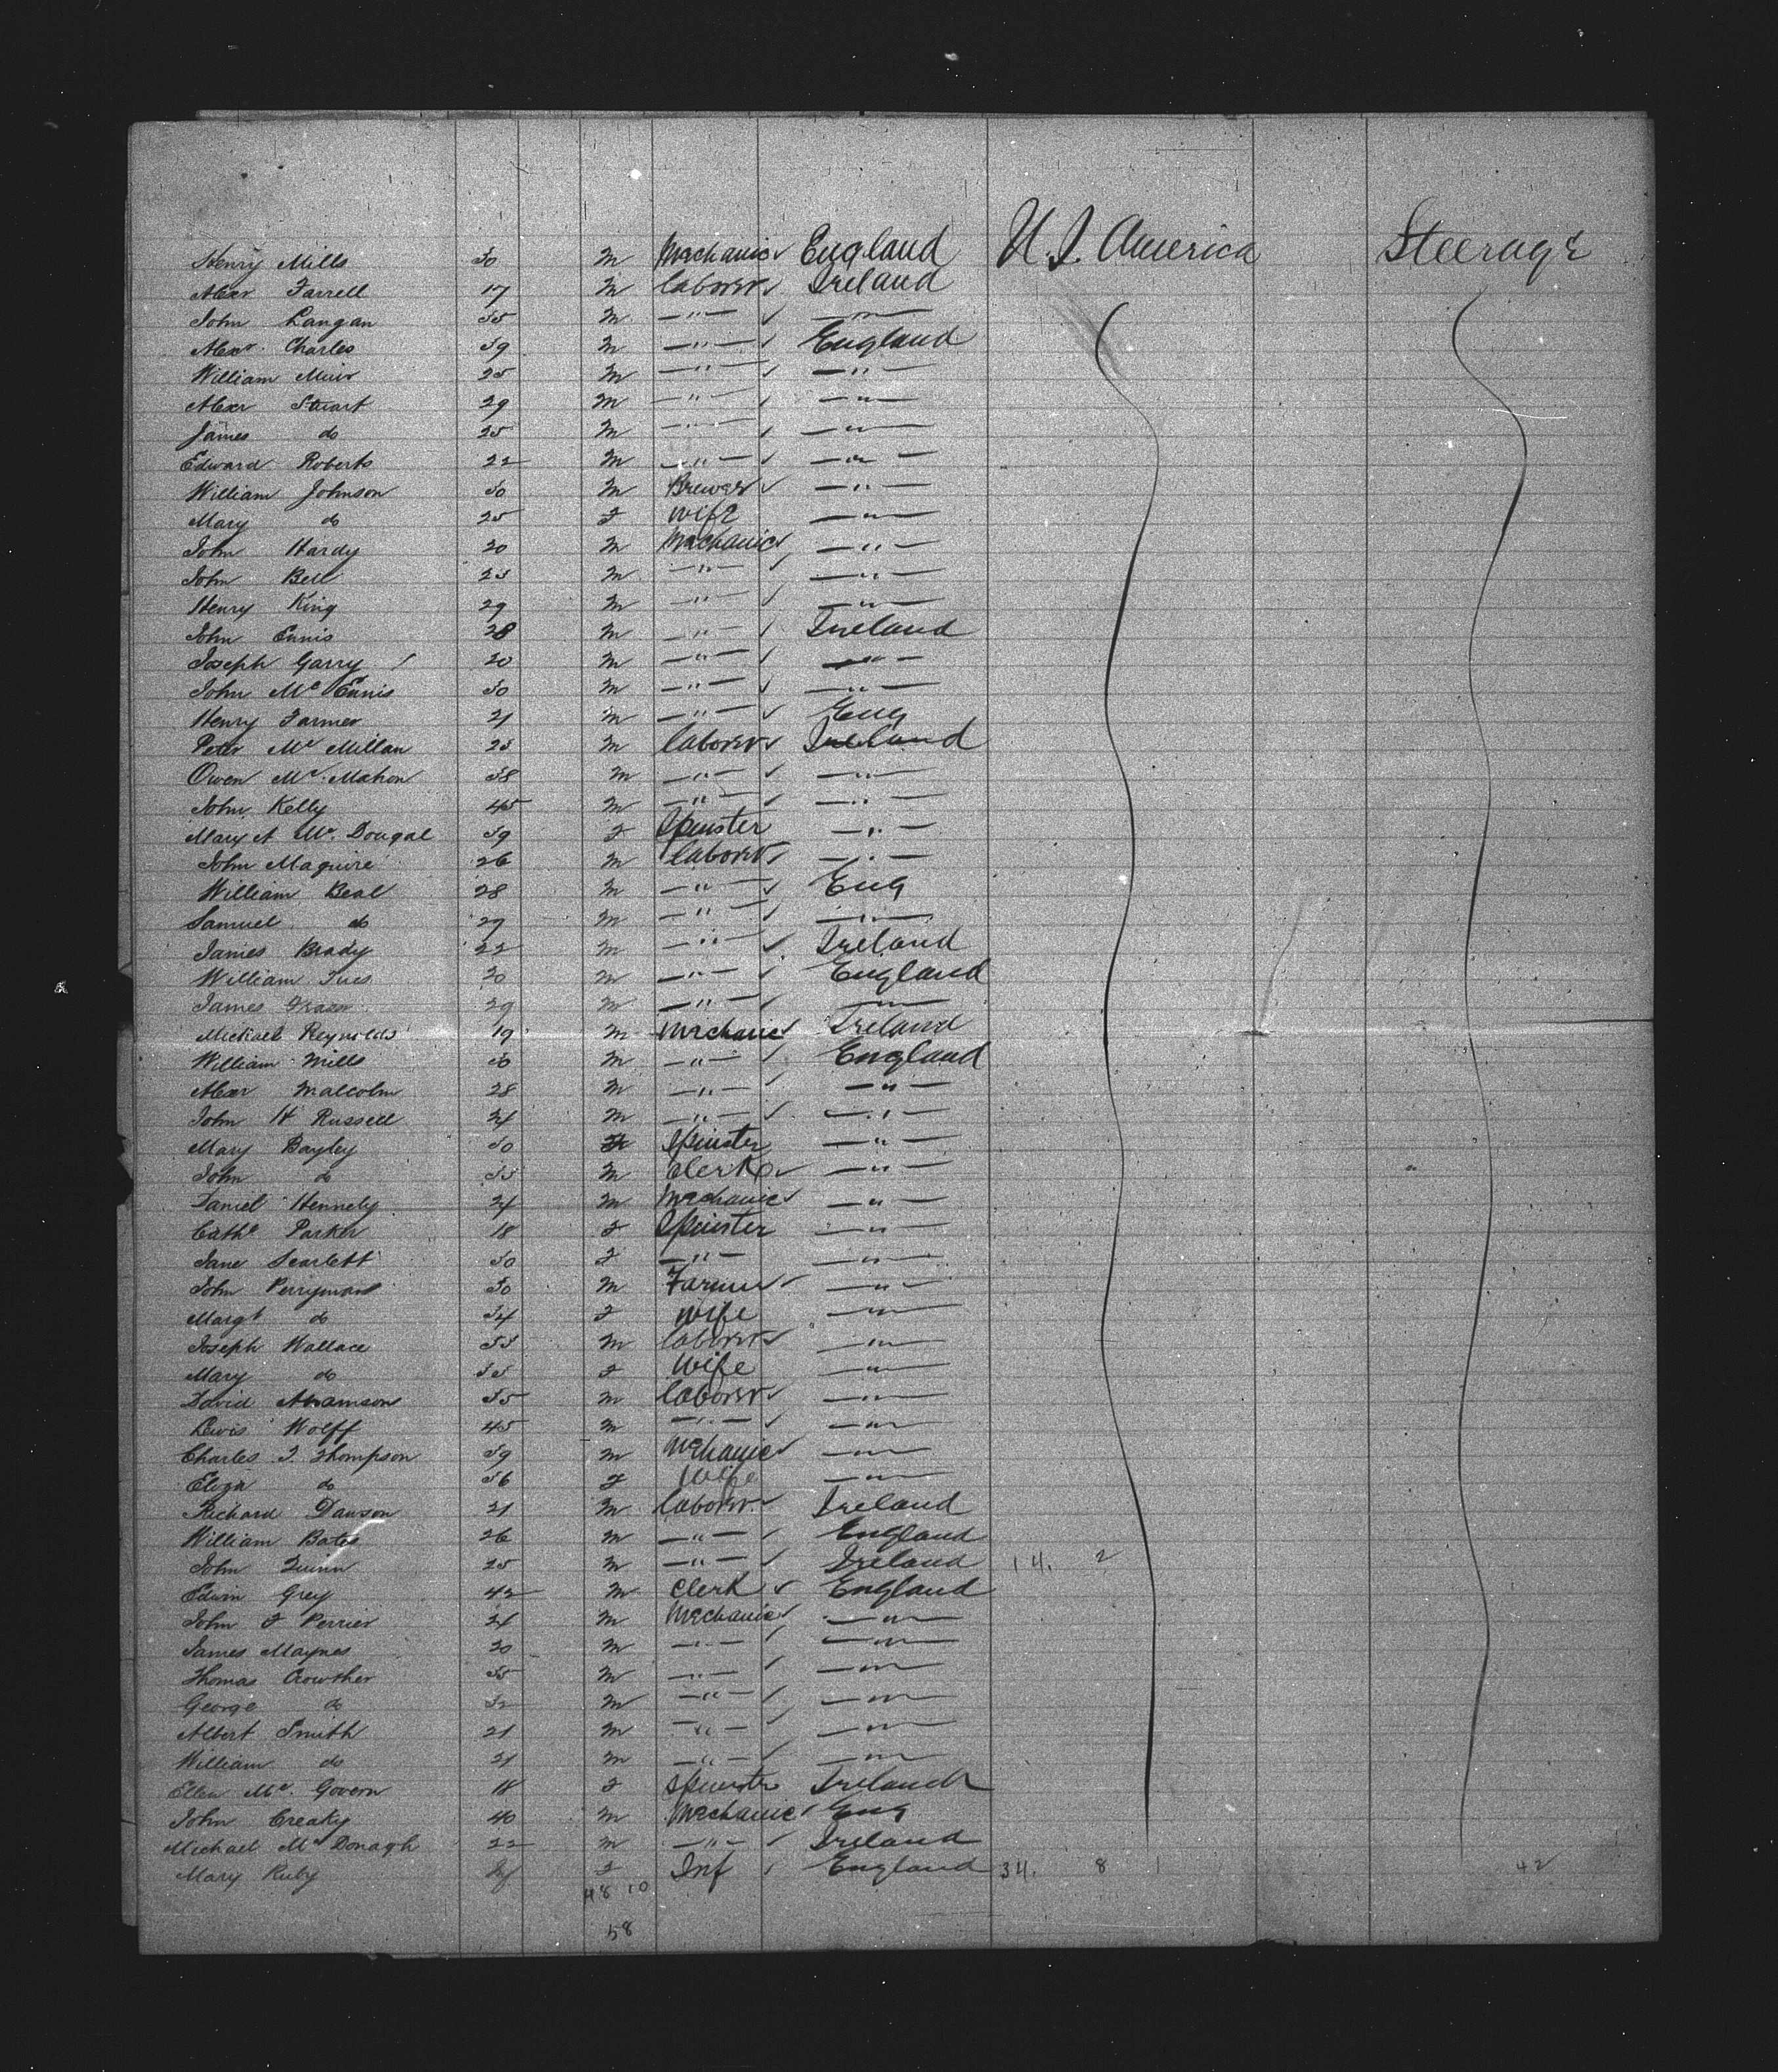 Henry Mills 30 M Mechanic ✓ England U.S. America Steerage
Alexr Farrell 17 M laborer ✓ Ireland
John Langan 35 M —"— ✓ —"—
Alexr Charles 39 M —"— ✓ England
William Muir 25 M —"— ✓ —"—
Alexr Stuart 29 M —"— ✓ —"—
James do 25 M —"— ✓ —"—
Edward Roberts 22 M —"— ✓ —"—
William Johnson 30 M Brewer ✓ —"—
Mary do 25 F wife —"—
John Hardy 20 M Mechanic ✓ —"—
John Bell 23 M —"— ✓ —"—
Henry King 29 M —"— ✓ —"—
John Ennis 28 M —"— ✓ Ireland
Joseph Garry 20 M —"— ✓ —"—
John Mc Ennis 30 M —"— ✓ —"—
Henry Farmer 21 M —"— ✓ Eng
Peter Mc Millan 23 M laborer ✓ Ireland
Owen Mc Mahon 38 M —"— ✓ —"—
John Kelly 45 M —"— ✓ —"—
Mary A Mc Dougal 39 F Spinster —"—
John Maguire 26 M laborer ✓ —"—
William Beal 28 M —"— ✓ Eng
Samuel do 29 M —"— ✓ —"—
James Brady 22 M —"— ✓ Ireland
William 20 M —"— ✓ England
James 29 M —"— ✓ —"—
Michael Reynolds 19 M Mechanic ✓ Ireland
William Mills 30 M —"— ✓ England
Alexr Malcolm 28 M —"— ✓ —"—
John H Russell 24 M —"— ✓ —"—
Mary Bayley 30 F Spinster —"—
John do 33 M Clerk ✓ —"—
Daniel Hennely 24 M Mechanic ✓ —"—
Cathe Parker 18 F Spinster —"—
Jane Scarlett 30 F —"— —"—
John Perryman 30 M Farmer ✓ —"—
Margt do 34 F wife —"—
Joseph Wallace 33 M laborer ✓ —"—
Mary do 33 F Wife —"—
David 35 M laborer ✓ —"—
Lewis Wolff 45 M —"— ✓ —"—
Charles J. Thompson 39 M Mchanic ✓ —"—
Eliza do 36 F Wife —"—
Richard Dawson 21 M laborer ✓ Ireland
William Bates 26 M —"— ✓ England
John Quinn 25 M —"— ✓ Ireland 14. 2
Edwin Grey 42 M Clerk ✓ England
John F Perrier 24 M Mechanic ✓ —"—
James Maynes 20 M —"— ✓ —"—
Thomas Crowther 35 M —"— ✓ —"—
George do 32 M —"— ✓ —"—
Albert Smith 21 M —"— —"—
William do 21 M —"— ✓ —"—
Ellen Mc Govern 18 F Spinster Ireland
John Greaky 40 M Mechanic ✓ Eng
Michael Mc Donagh 22 M —"— ✓ Ireland
Mary Ruby Inf F Inf England 34. 8 42
48 10
58